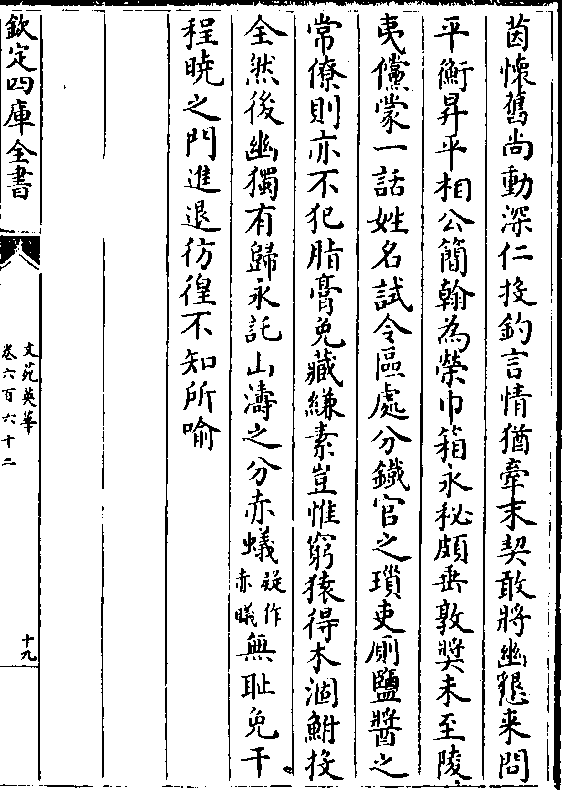 茵懷舊尚動深仁投釣言情猶牽末契敢將幽懇来問
平衡昇平相公簡翰為榮巾箱永秘頗垂敦奬未至陵
夷儻蒙一話姓名試令區處分鐵官之瑣吏厠鹽醬之
常僚則亦不犯脂膏免藏縑素豈惟窮猿得木涸鮒投
全然後幽獨有歸永託山濤之分赤蟻疑作赤曦無耻免干
程曉之門進退彷徨不知所喻
欽定四庫全書
文苑英華
卷六百六十二
十九